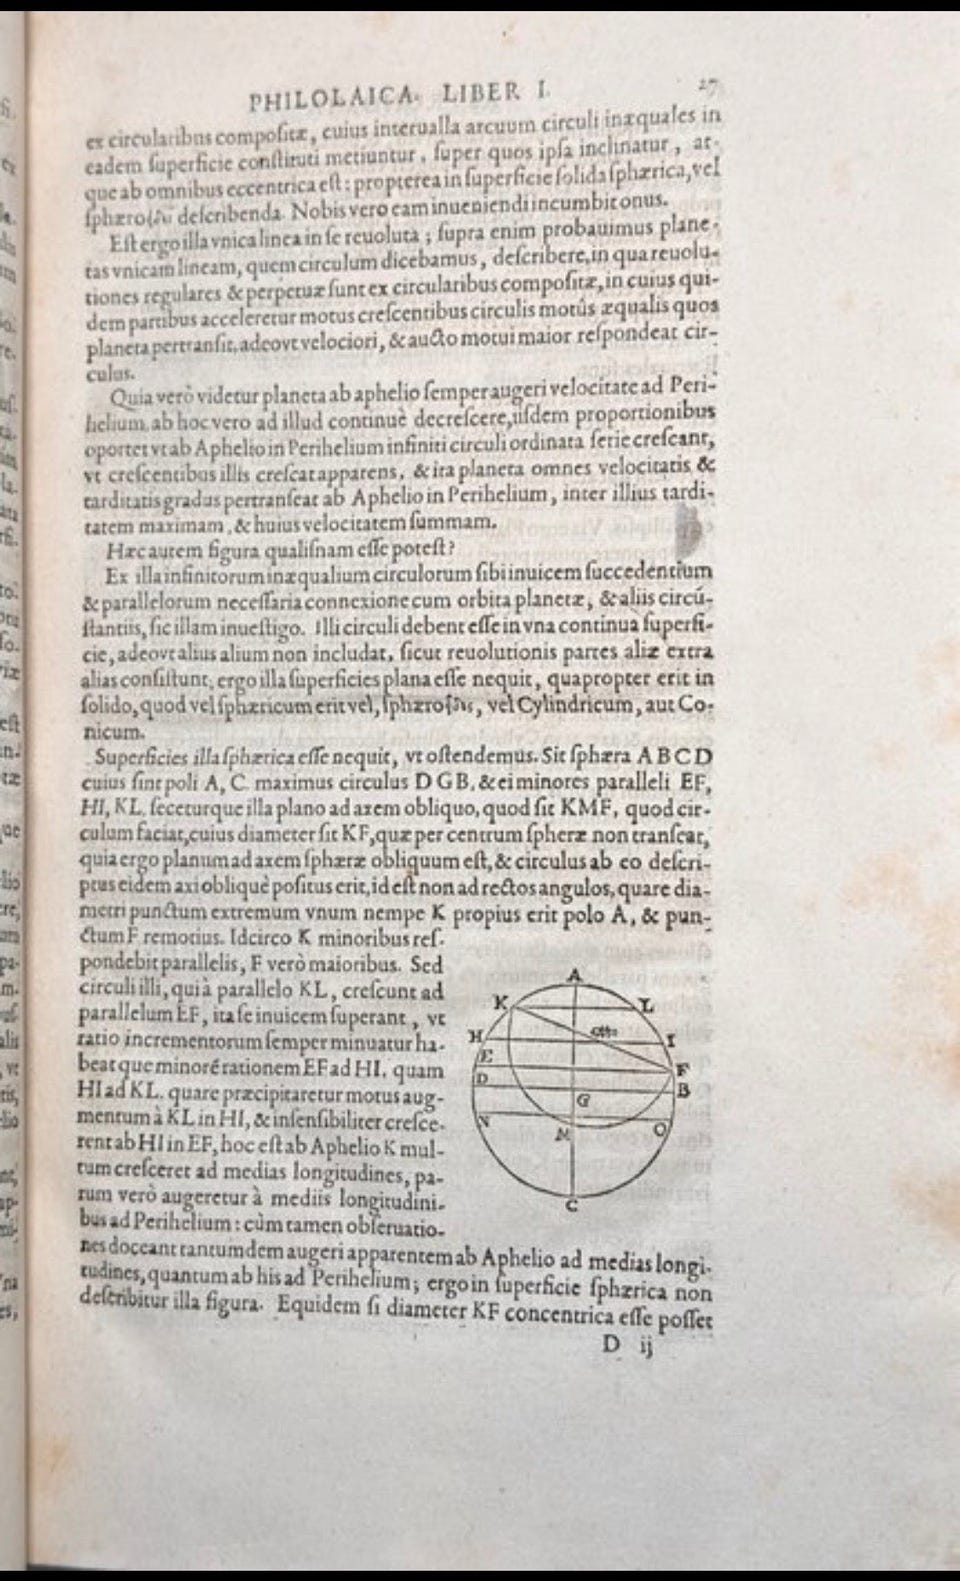 PHILOLAICA. LIBER I. 27
ex circularibus compositæ, cuius interualla arcuum circuli inæquales in
eadem superficie constituti metiuntur, super quos ipsa inclinatur, at-
que ab omnibus eccentrica est: propterea in superficie solida sphærica, vel
describenda. Nobis vero eam inueniendi incumbit onus.
Est ergo illa vnica linea in se reuoluta; supra enim probauimus plane-
tas vnicam lineam, quem circulum dicebamus, describere, in qua reuolu-
tiones regulares & perpetuæ sunt ex circularibus compositæ, in cuius qui-
dem partibus acceleretur motus crescentibus circulis motûs æqualis quos
planeta pertransit, adeovt velociori, & aucto motui maior respondeat cir-
culus.
Quia verò videtur planeta ab aphelio semper augeri velocitate ad Peri-
helium, ab hoc vero ad illud continuè decrescere, iisdem proportionibus
oportet vt ab Aphelio in Perihelium infiniti circuli ordinata serie crescant,
vt crescentibus illis crescat apparens, & ita planeta omnes velocitatis &
tarditatis gradus pertranseat ab Aphelio in Perihelium, inter illius tardi-
tatem maximam, & huius velocitatem summam.
Hæc autem figura qualisnam esse potest?
Ex illa infinitorum inæqualium circulorum sibi inuicem succedentium
& parallelorum necessaria connexione cum orbita planetæ, & aliis circũ-
stantiis, sic illam inuestigo. Illi circuli debent esse in vna continua superfi-
cie, adeovt alius alium non includat, sicut reuolutionis partes aliæ extra
alias consistunt; ergo illa superficies plana esse nequit, quapropter erit in
solido, quod vel sphæricum erit vel, vel Cylindricum, aut Co-
nicum.
Superficies illa sphærica esse nequit, vt ostendemus. Sit sphæra A B C D
cuius sint poli A, C. maximus circulus D G B, & ei minores paralleli EF,
HI, KL, seceturque illa plano ad axem obliquo, quod sit KMF, quod cir-
culum faciat, cuius diameter sit KF, quæ per centrum spheræ non transeat,
quia ergo planum ad axem sphæræ obliquum est, & circulus ab eo descri-
ptus eidem axi obliquè positus erit, id est non ad rectos angulos, quare dia-
metri punctum extremum vnum nempe K propius erit polo A, & pun-
ctum F remotius. Idcirco K minoribus res-
pondebit parallelis, F verò maioribus. Sed
circuli illi, qui à parallelo KL, crescunt ad
parallelum EF, ita se inuicem superant, vt
ratio incrementorum semper minuatur ha-
beatque minoré rationem EF ad HI, quam
HI ad KL. quare præcipitaretur motus aug-
mentum à KL in HI, & insensibiliter cresce-
rent ab HI in EF, hoc est ab Aphelio K mul-
tum cresceret ad medias longitudines, pa-
rum verò augeretur à mediis longitudini-
bus ad Perihelium: cùm tamen obseruatio-
nes doceant tantumdem augeri apparentem ab Aphelio ad medias longi-
tudines, quantum ab his ad Perihelium; ergo in superficie sphærica non
describitur illa figura. Equidem si diameter KF concentrica esse posset
D ij
A
K L
H I
E F
D B
G
N O
M
C